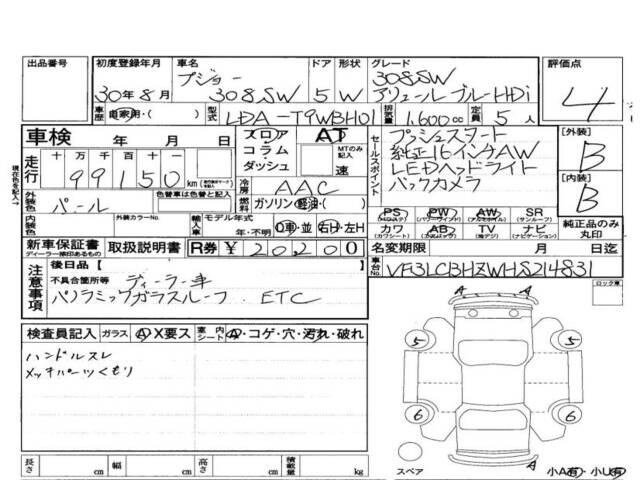 出品番号 初度登録年月 車名 ドア 形状 グレード 評価点
30年8月 プジョー 308SW 5 W 308SW アリュールブルーHDi 4
車歴 自家用・( ) 型式 LDA-T9WBH01 排気量 1,600cc 定員 5人
車検 年 月 日
フロア AT
コラム・ MTのみ記入
ダッシュ 速
走行 十万千百十一
99150 km
冷房 AAC
外装色 パール 色替車は色替と記入 燃料 ガソリン・軽油・( )
内装色 外装カラーNo. 輸入車 モデル年式 年・不明 D車・並 右H・左H
セールスポイント
プッシュスタート
純正16インチAW
LEDヘッドライト
バックカメラ
[外装]
B
[内装]
B
PS PW AW SR
(パワーウィンド) (アルミホイル) (サンルーフ)
カワ AB TV ナビ
(カワシート) (エアバッグ) (地デジ) (ナビゲーション)
純正品のみ丸印
新車保証書 取扱説明書 R券 ¥20200
ディーラー捺印あるもの
名変期限 月 日迄
車台No. VF3LCBHZWHS214831
現在色を記入→
注意事項
後日品 [ ]
不具合箇所等 ディーラー車
パノラミックガラスルーフ . ETC
ロック車
検査員記入 ガラス A・X要ス 室内シート A・コゲ・穴・汚れ・破れ
ハンドルスレ
メッキパーツくもり
A A
5 5
6 6
A
長さ cm 幅 cm 高さ cm 積載量 kg
スペア 小A有・小U有